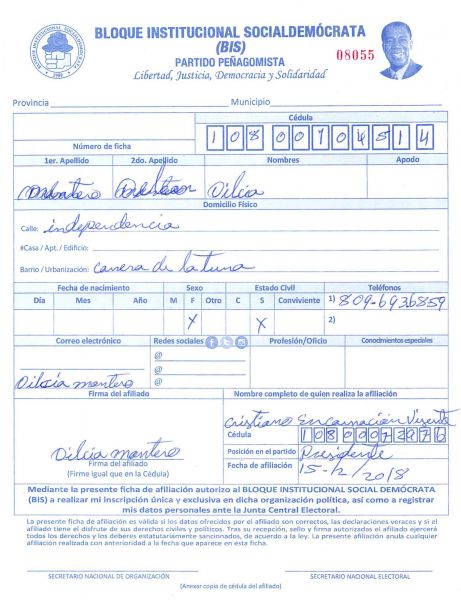 BLOQUE INSTITUCIONAL SOCIALDEMÓCRATA
(BIS)
PARTIDO PEÑAGOMISTA
08055
Libertad, Justicia, Democracia y Solidaridad
Provincia Municipio
Cédula
108 0010451 4
Número de ficha
1er. Apellido 2do. Apellido Nombres Apodo
Montero Dilcia
Domicilio Físico
Calle: independencia
#Casa / Apt. / Edificio:
Barrio / Urbanización: carrera de la tuna
Fecha de nacimiento Sexo Estado Civil Teléfonos
Día Mes Año M F Otro C S Conviviente 1) 809-6936859
X X 2)
Correo electrónico Redes sociales Profesión/Oficio Conocimientos especiales
@
@
@
Dilcia montero
Firma del afiliado Nombre completo de quien realiza la afiliación
Cristiano Encarnación Vicente
Cédula
Dilcia montero
Posición en el partido Presidente
Firma del afiliado
(Firme igual que en la Cédula)
Fecha de afiliación 15-12/2018
Mediante la presente ficha de afiliación autorizo al BLOQUE INSTITUCIONAL SOCIAL DEMÓCRATA
(BIS) a realizar mi inscripción única y exclusiva en dicha organización política, así como a registrar
mis datos personales ante la Junta Central Electoral.
La presente ficha de afiliación es válida si los datos ofrecidos por el afiliado son correctos, las declaraciones veraces y si el
afiliado tiene el disfrute de sus derechos civiles y políticos. Tras su recepción, sello y firma autorizados el afiliado ejercerá
todos los derechos y los deberes estatutariamente sancionados, de acuerdo a la ley. La presente afiliación anula cualquier
afiliación realizada con anterioridad a la fecha que aparece en esta ficha.
SECRETARIO NACIONAL DE ORGANIZACIÓN SECRETARIO NACIONAL ELECTORAL
(Anexar copia de cédula del afiliado)